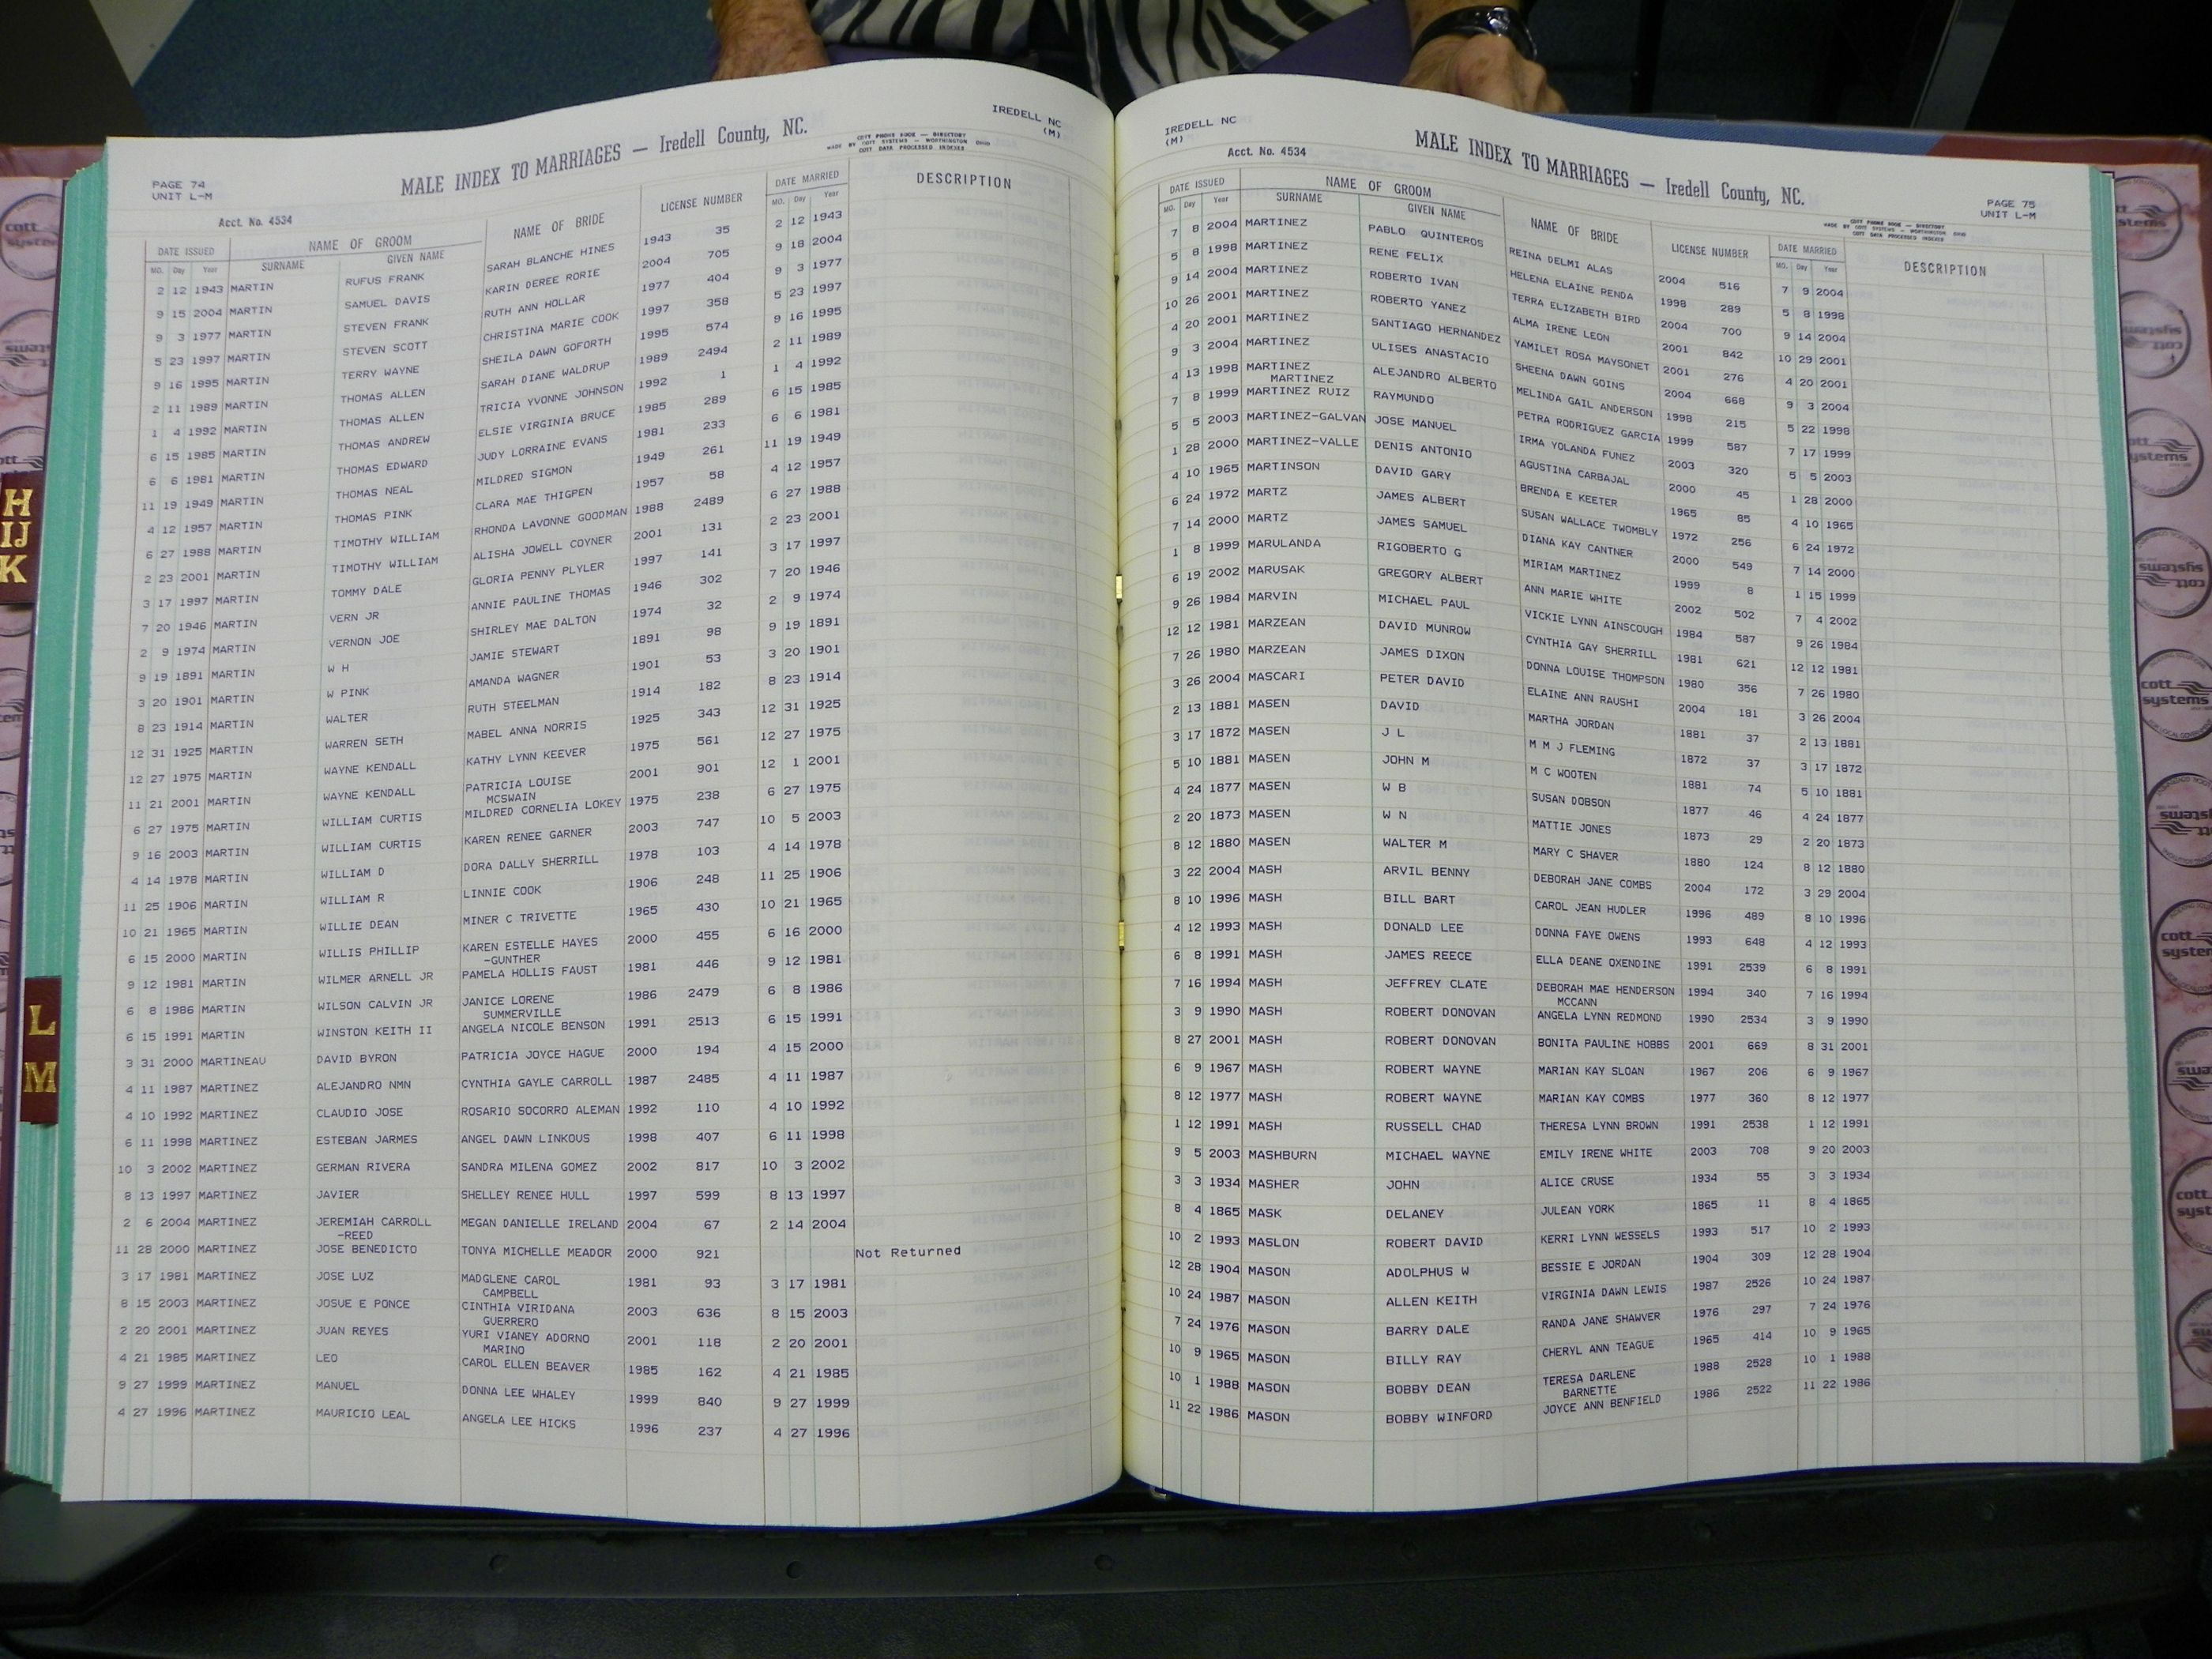 PAGE 74
UNIT L-M
MALE INDEX TO MARRIAGES — Iredell County, NC.
IREDELL NC
(M)
COTT PHONE BOOK — DIRECTORY
MADE BY COTT SYSTEMS — WORTHINGTON OHIO
COTT DATA PROCESSED INDEXES
Acct. No. 4534
DATE ISSUED NAME OF GROOM NAME OF BRIDE LICENSE NUMBER DATE MARRIED DESCRIPTION
MO. Day Year SURNAME GIVEN NAME MO. Day Year
2 12 1943 MARTIN RUFUS FRANK SARAH BLANCHE HINES 1943 35 2 12 1943
9 15 2004 MARTIN SAMUEL DAVIS KARIN DEREE RORIE 2004 705 9 18 2004
9 3 1977 MARTIN STEVEN FRANK RUTH ANN HOLLAR 1977 404 9 3 1977
5 23 1997 MARTIN STEVEN SCOTT CHRISTINA MARIE COOK 1997 358 5 23 1997
9 16 1995 MARTIN TERRY WAYNE SHEILA DAWN GOFORTH 1995 574 9 16 1995
2 11 1989 MARTIN THOMAS ALLEN SARAH DIANE WALDRUP 1989 2494 2 11 1989
1 4 1992 MARTIN THOMAS ALLEN TRICIA YVONNE JOHNSON 1992 1 1 4 1992
6 15 1985 MARTIN THOMAS ANDREW ELSIE VIRGINIA BRUCE 1985 289 6 15 1985
6 6 1981 MARTIN THOMAS EDWARD JUDY LORRAINE EVANS 1981 233 6 6 1981
11 19 1949 MARTIN THOMAS NEAL MILDRED SIGMON 1949 261 11 19 1949
4 12 1957 MARTIN THOMAS PINK CLARA MAE THIGPEN 1957 58 4 12 1957
6 27 1988 MARTIN TIMOTHY WILLIAM RHONDA LAVONNE GOODMAN 1988 2489 6 27 1988
2 23 2001 MARTIN TIMOTHY WILLIAM ALISHA JOWELL COYNER 2001 131 2 23 2001
3 17 1997 MARTIN TOMMY DALE GLORIA PENNY PLYLER 1997 141 3 17 1997
7 20 1946 MARTIN VERN JR ANNIE PAULINE THOMAS 1946 302 7 20 1946
2 9 1974 MARTIN VERNON JOE SHIRLEY MAE DALTON 1974 32 2 9 1974
9 19 1891 MARTIN W H JAMIE STEWART 1891 98 9 19 1891
3 20 1901 MARTIN W PINK AMANDA WAGNER 1901 53 3 20 1901
8 23 1914 MARTIN WALTER RUTH STEELMAN 1914 182 8 23 1914
12 31 1925 MARTIN WARREN SETH MABEL ANNA NORRIS 1925 343 12 31 1925
12 27 1975 MARTIN WAYNE KENDALL KATHY LYNN KEEVER 1975 561 12 27 1975
11 21 2001 MARTIN WAYNE KENDALL PATRICIA LOUISE 2001 901 12 1 2001
MCSWAIN
6 27 1975 MARTIN WILLIAM CURTIS MILDRED CORNELIA LOKEY 1975 238 6 27 1975
9 16 2003 MARTIN WILLIAM CURTIS KAREN RENEE GARNER 2003 747 10 5 2003
4 14 1978 MARTIN WILLIAM D DORA DALLY SHERRILL 1978 103 4 14 1978
11 25 1906 MARTIN WILLIAM R LINNIE COOK 1906 248 11 25 1906
10 21 1965 MARTIN WILLIE DEAN MINER C TRIVETTE 1965 430 10 21 1965
6 15 2000 MARTIN WILLIS PHILLIP KAREN ESTELLE HAYES 2000 455 6 16 2000
-GUNTHER
9 12 1981 MARTIN WILMER ARNELL JR PAMELA HOLLIS FAUST 1981 446 9 12 1981
6 8 1986 MARTIN WILSON CALVIN JR JANICE LORENE 1986 2479 6 8 1986
SUMMERVILLE
6 15 1991 MARTIN WINSTON KEITH II ANGELA NICOLE BENSON 1991 2513 6 15 1991
3 31 2000 MARTINEAU DAVID BYRON PATRICIA JOYCE HAGUE 2000 194 4 15 2000
4 11 1987 MARTINEZ ALEJANDRO NMN CYNTHIA GAYLE CARROLL 1987 2485 4 11 1987
4 10 1992 MARTINEZ CLAUDIO JOSE ROSARIO SOCORRO ALEMAN 1992 110 4 10 1992
6 11 1998 MARTINEZ ESTEBAN JARMES ANGEL DAWN LINKOUS 1998 407 6 11 1998
10 3 2002 MARTINEZ GERMAN RIVERA SANDRA MILENA GOMEZ 2002 817 10 3 2002
8 13 1997 MARTINEZ JAVIER SHELLEY RENEE HULL 1997 599 8 13 1997
2 6 2004 MARTINEZ JEREMIAH CARROLL MEGAN DANIELLE IRELAND 2004 67 2 14 2004
-REED
11 28 2000 MARTINEZ JOSE BENEDICTO TONYA MICHELLE MEADOR 2000 921 Not Returned
3 17 1981 MARTINEZ JOSE LUZ MADGLENE CAROL 1981 93 3 17 1981
CAMPBELL
8 15 2003 MARTINEZ JOSUE E PONCE CINTHIA VIRIDANA 2003 636 8 15 2003
GUERRERO
2 20 2001 MARTINEZ JUAN REYES YURI VIANEY ADORNO 2001 118 2 20 2001
MARINO
4 21 1985 MARTINEZ LEO CAROL ELLEN BEAVER 1985 162 4 21 1985
9 27 1999 MARTINEZ MANUEL DONNA LEE WHALEY 1999 840 9 27 1999
4 27 1996 MARTINEZ MAURICIO LEAL ANGELA LEE HICKS 1996 237 4 27 1996
IREDELL NC
(M)
Acct. No. 4534
MALE INDEX TO MARRIAGES — Iredell County, NC.
PAGE 75
UNIT L-M
COTT PHONE BOOK — DIRECTORY
MADE BY COTT SYSTEMS — WORTHINGTON OHIO
COTT DATA PROCESSED INDEXES
DATE ISSUED NAME OF GROOM NAME OF BRIDE LICENSE NUMBER DATE MARRIED DESCRIPTION
MO. Day Year SURNAME GIVEN NAME MO. Day Year
7 8 2004 MARTINEZ PABLO QUINTEROS REINA DELMI ALAS 2004 516 7 9 2004
5 8 1998 MARTINEZ RENE FELIX HELENA ELAINE RENDA 1998 289 5 8 1998
9 14 2004 MARTINEZ ROBERTO IVAN TERRA ELIZABETH BIRD 2004 700 9 14 2004
10 26 2001 MARTINEZ ROBERTO YANEZ ALMA IRENE LEON 2001 842 10 29 2001
4 20 2001 MARTINEZ SANTIAGO HERNANDEZ YAMILET ROSA MAYSONET 2001 276 4 20 2001
9 3 2004 MARTINEZ ULISES ANASTACIO SHEENA DAWN GOINS 2004 668 9 3 2004
4 13 1998 MARTINEZ ALEJANDRO ALBERTO MELINDA GAIL ANDERSON 1998 215 5 22 1998
MARTINEZ
7 8 1999 MARTINEZ RUIZ RAYMUNDO PETRA RODRIGUEZ GARCIA 1999 587 7 17 1999
5 5 2003 MARTINEZ-GALVAN JOSE MANUEL IRMA YOLANDA FUNEZ 2003 320 5 5 2003
1 28 2000 MARTINEZ-VALLE DENIS ANTONIO AGUSTINA CARBAJAL 2000 45 1 28 2000
4 10 1965 MARTINSON DAVID GARY BRENDA E KEETER 1965 85 4 10 1965
6 24 1972 MARTZ JAMES ALBERT SUSAN WALLACE TWOMBLY 1972 256 6 24 1972
7 14 2000 MARTZ JAMES SAMUEL DIANA KAY CANTNER 2000 549 7 14 2000
1 8 1999 MARULANDA RIGOBERTO G MIRIAM MARTINEZ 1999 8 1 15 1999
6 19 2002 MARUSAK GREGORY ALBERT ANN MARIE WHITE 2002 502 7 4 2002
9 26 1984 MARVIN MICHAEL PAUL VICKIE LYNN AINSCOUGH 1984 587 9 26 1984
12 12 1981 MARZEAN DAVID MUNROW CYNTHIA GAY SHERRILL 1981 621 12 12 1981
7 26 1980 MARZEAN JAMES DIXON DONNA LOUISE THOMPSON 1980 356 7 26 1980
3 26 2004 MASCARI PETER DAVID ELAINE ANN RAUSHI 2004 181 3 26 2004
2 13 1881 MASEN DAVID MARTHA JORDAN 1881 37 2 13 1881
3 17 1872 MASEN J L M M J FLEMING 1872 37 3 17 1872
5 10 1881 MASEN JOHN M M C WOOTEN 1881 74 5 10 1881
4 24 1877 MASEN W B SUSAN DOBSON 1877 46 4 24 1877
2 20 1873 MASEN W N MATTIE JONES 1873 29 2 20 1873
8 12 1880 MASEN WALTER M MARY C SHAVER 1880 124 8 12 1880
3 22 2004 MASH ARVIL BENNY DEBORAH JANE COMBS 2004 172 3 29 2004
8 10 1996 MASH BILL BART CAROL JEAN HUDLER 1996 489 8 10 1996
4 12 1993 MASH DONALD LEE DONNA FAYE OWENS 1993 648 4 12 1993
6 8 1991 MASH JAMES REECE ELLA DEANE OXENDINE 1991 2539 6 8 1991
7 16 1994 MASH JEFFREY CLATE DEBORAH MAE HENDERSON 1994 340 7 16 1994
MCCANN
3 9 1990 MASH ROBERT DONOVAN ANGELA LYNN REDMOND 1990 2534 3 9 1990
8 27 2001 MASH ROBERT DONOVAN BONITA PAULINE HOBBS 2001 669 8 31 2001
6 9 1967 MASH ROBERT WAYNE MARIAN KAY SLOAN 1967 206 6 9 1967
8 12 1977 MASH ROBERT WAYNE MARIAN KAY COMBS 1977 360 8 12 1977
1 12 1991 MASH RUSSELL CHAD THERESA LYNN BROWN 1991 2538 1 12 1991
9 5 2003 MASHBURN MICHAEL WAYNE EMILY IRENE WHITE 2003 708 9 20 2003
3 3 1934 MASHER JOHN ALICE CRUSE 1934 55 3 3 1934
8 4 1865 MASK DELANEY JULEAN YORK 1865 11 8 4 1865
10 2 1993 MASLON ROBERT DAVID KERRI LYNN WESSELS 1993 517 10 2 1993
12 28 1904 MASON ADOLPHUS W BESSIE E JORDAN 1904 309 12 28 1904
10 24 1987 MASON ALLEN KEITH VIRGINIA DAWN LEWIS 1987 2526 10 24 1987
7 24 1976 MASON BARRY DALE RANDA JANE SHAWVER 1976 297 7 24 1976
10 9 1965 MASON BILLY RAY CHERYL ANN TEAGUE 1965 414 10 9 1965
10 1 1988 MASON BOBBY DEAN TERESA DARLENE 1988 2528 10 1 1988
BARNETTE
11 22 1986 MASON BOBBY WINFORD JOYCE ANN BENFIELD 1986 2522 11 22 1986
H
IJ
K
L
M
cott
systems